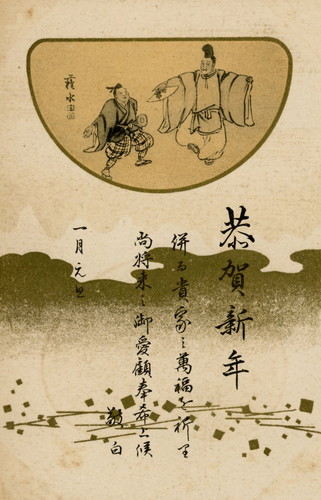 恭賀新年
併而貴家之萬福を祈り
尚将来之御愛顧奉希上候
敬白
一月元旦
水